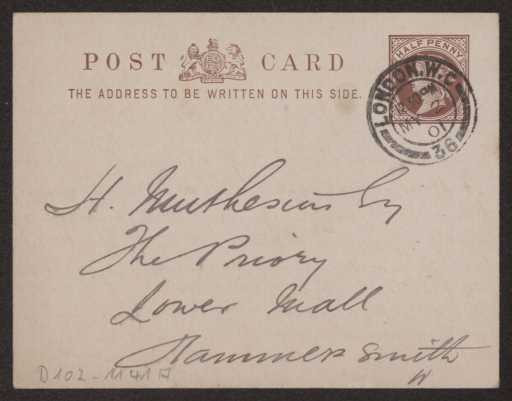 POST CARD
THE ADDRESS TO BE WRITTEN ON THIS SIDE.
HALF PENNY
LONDON. W.C
MY 
01
36
H. Muthesius Esq
The Priory
Lower Mall
Hammersmith
W
D102-1141A